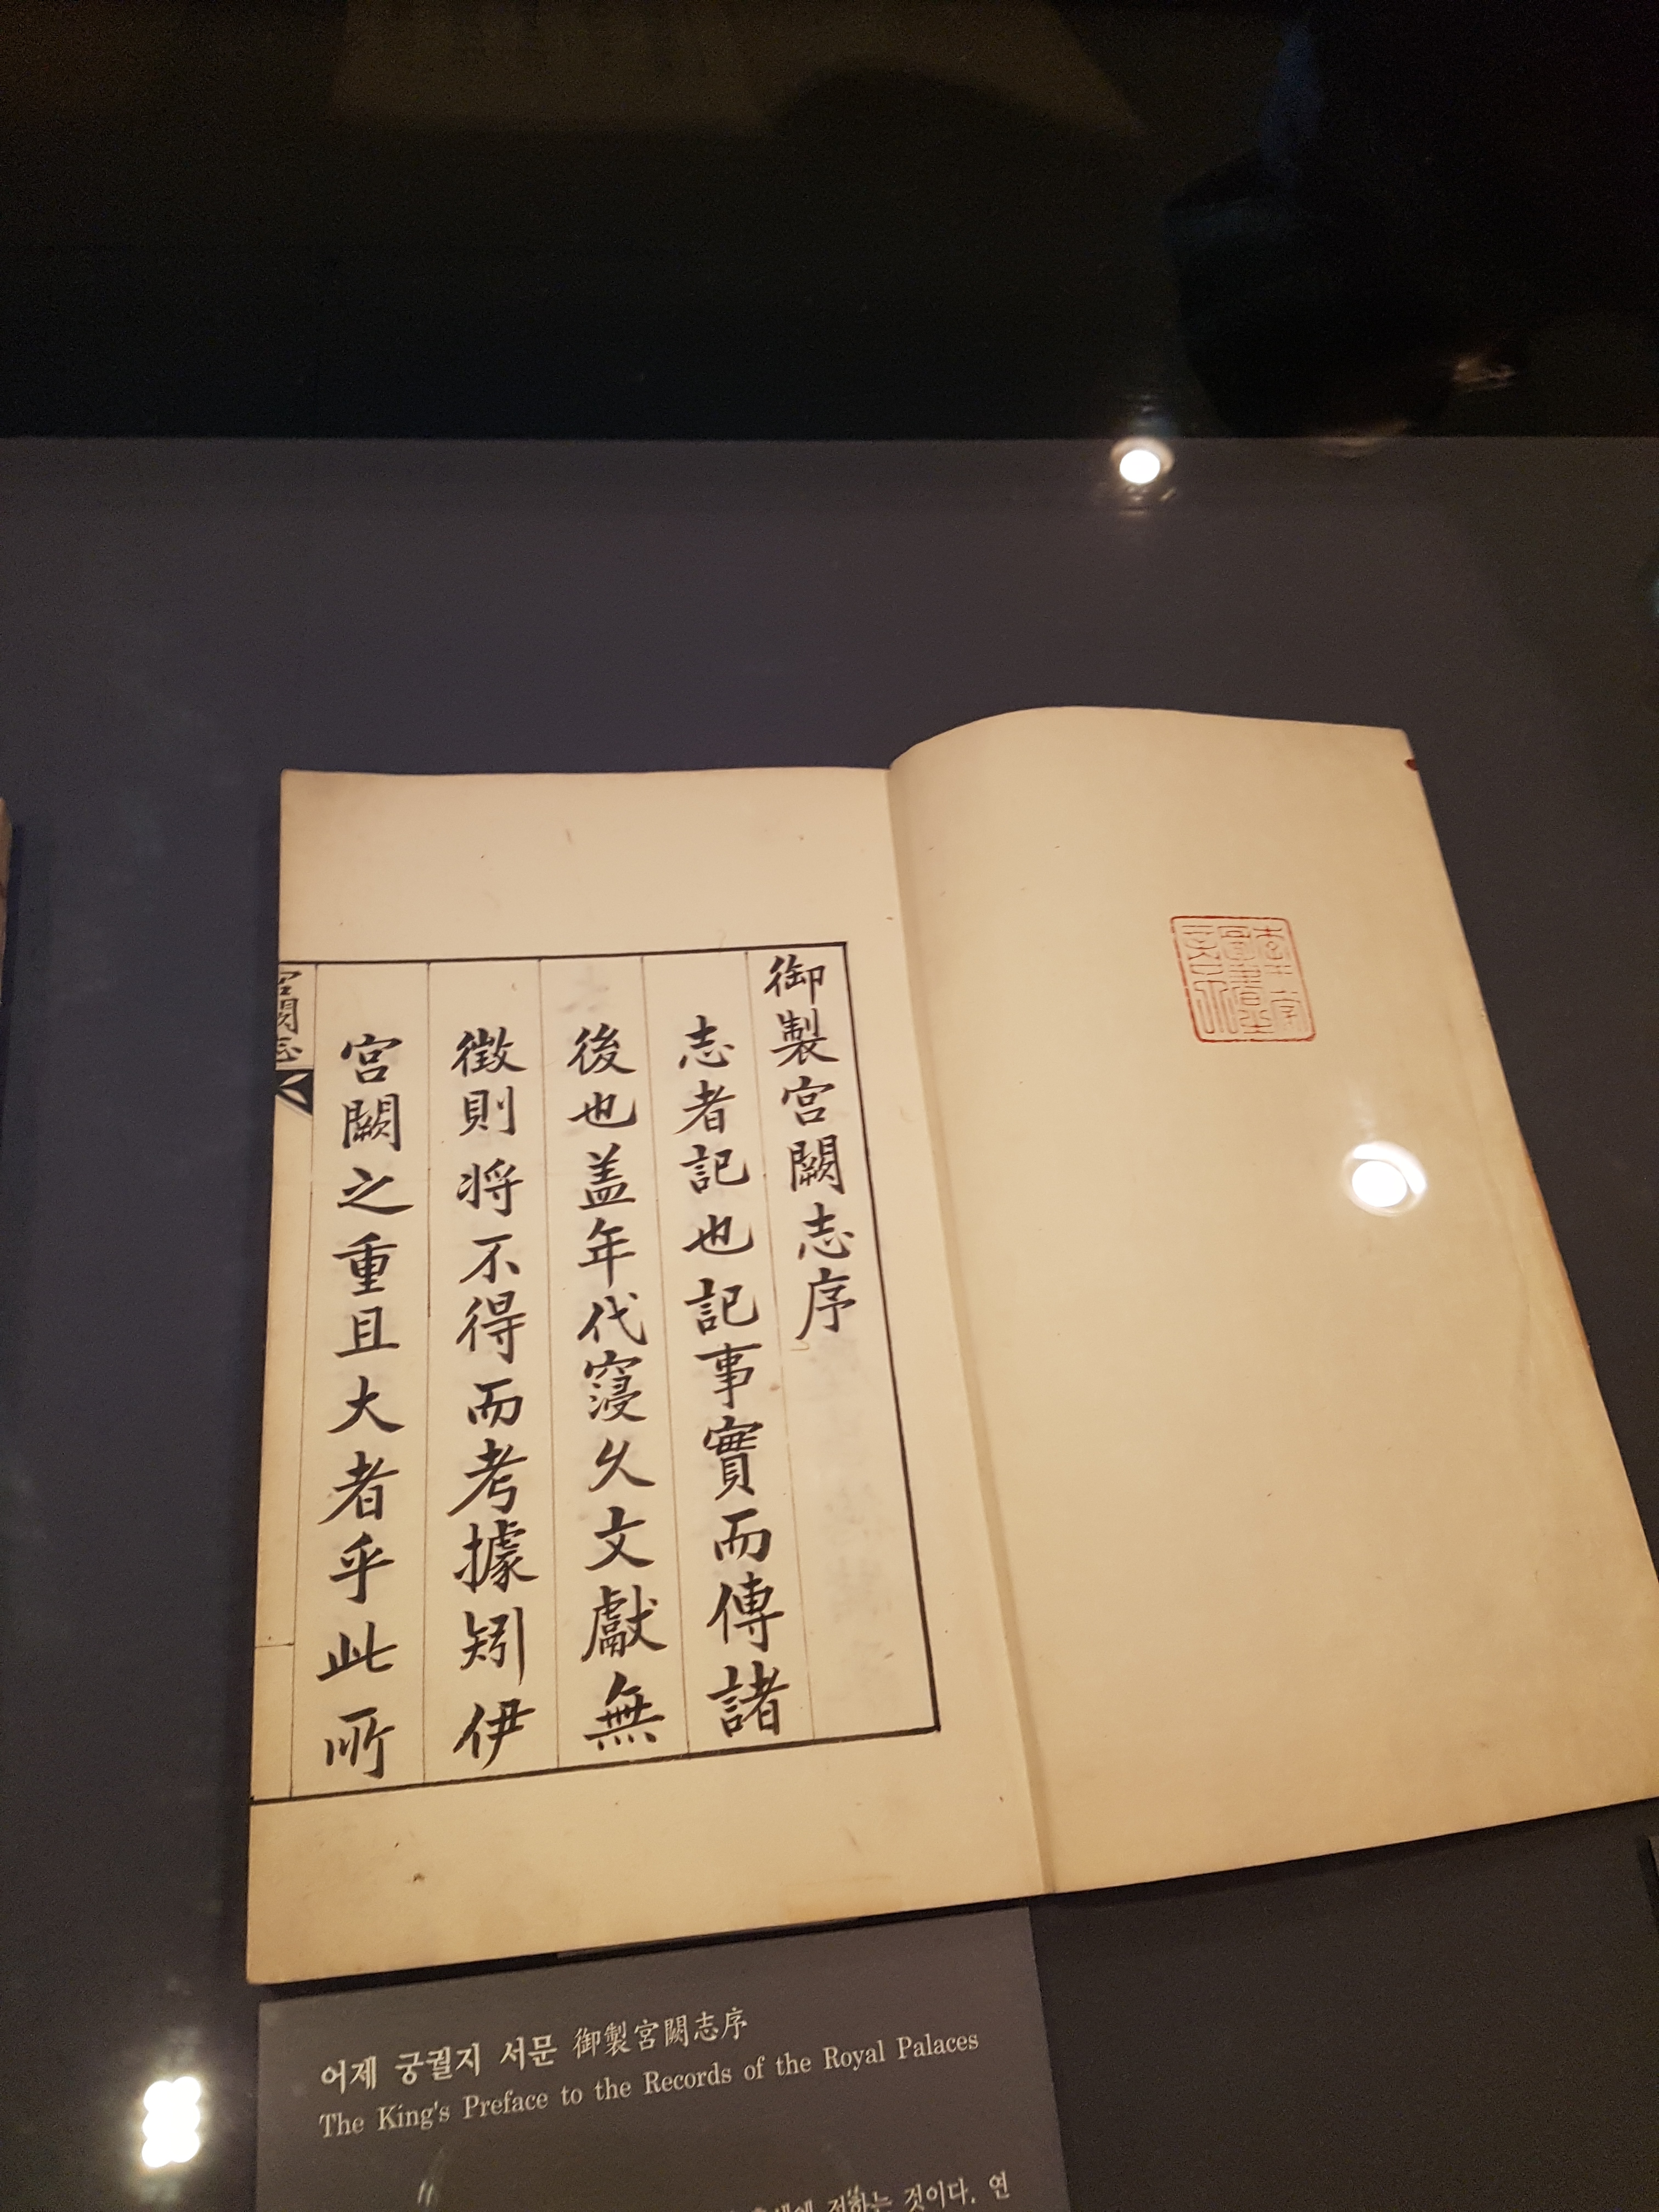 御製宮闕志序
志者記也記事實而傳諸
後也盖年代寖久文獻無
徵則将不得而考據矧伊
宮闕之重且大者乎此所
宮闕志
어제 궁궐지 서문 御製宮闕志序
The King's Preface to the Records of the Royal Palaces
전하는 것이다. 연